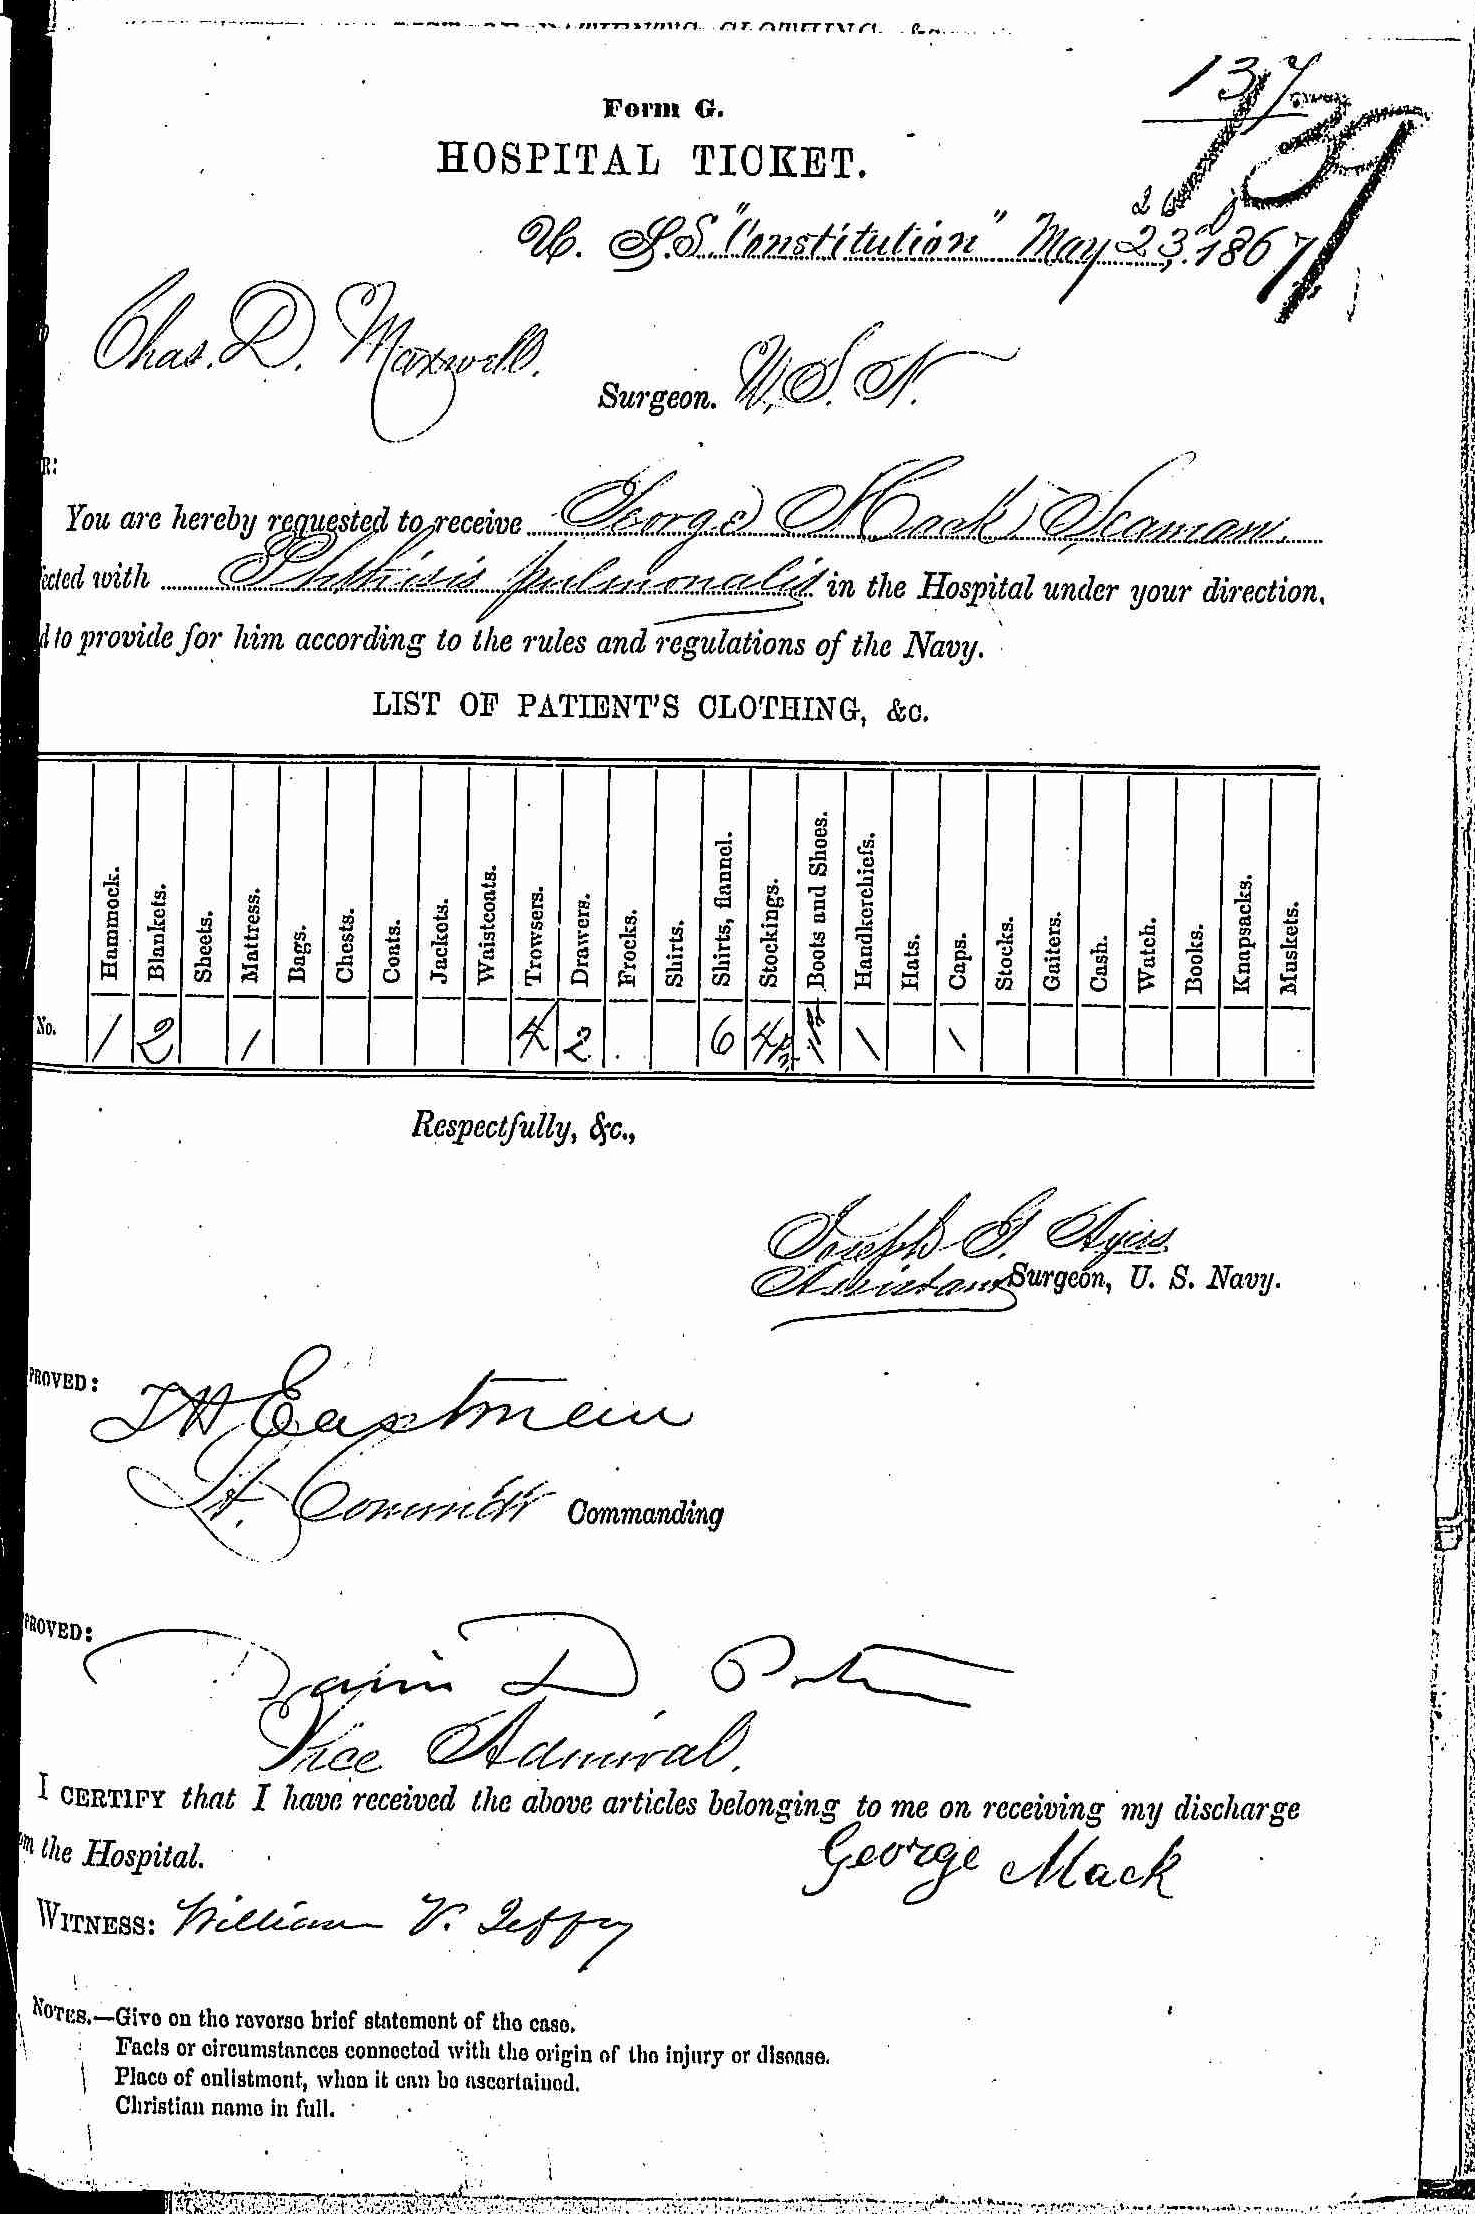 137
139
Form G.
HOSPITAL TICKET.
26
U. S. S. "Constitution" May 23d, 1867
Chas. D. Maxwell.
Surgeon. U. S. N.
R:
You are hereby requested to receive George Mack, Seaman,
ected with Phthisis pulmonalis in the Hospital under your direction,
d to provide for him according to the rules and regulations of the Navy.
LIST OF PATIENT'S CLOTHING, &c.
Hammock. Blankets. Sheets. Mattress. Bags. Chests. Coats. Jackets. Waistcoats. Trowsers. Drawers. Frocks. Shirts. Shirts, flannel. Stockings. Boots and Shoes. Handkerchiefs. Hats. Caps. Stocks. Gaiters. Cash. Watch. Books. Knapsacks. Muskets.
No. 1 2 1 4 2 6 4 pr 1 pr 1 1
Respectfully, &c.,
Joseph G. Ayers
Assistant Surgeon, U. S. Navy.
PROVED:
T H Eastman
Lt. Commdr Commanding
PROVED:
David D Porter
Vice Admiral.
I CERTIFY that I have received the above articles belonging to me on receiving my discharge
om the Hospital.
George Mack
WITNESS: William V.
NOTES.—Give on the reverse brief statement of the case.
Facts or circumstances connected with the origin of the injury or disease.
Place of enlistment, when it can be ascertained.
Christian name in full.